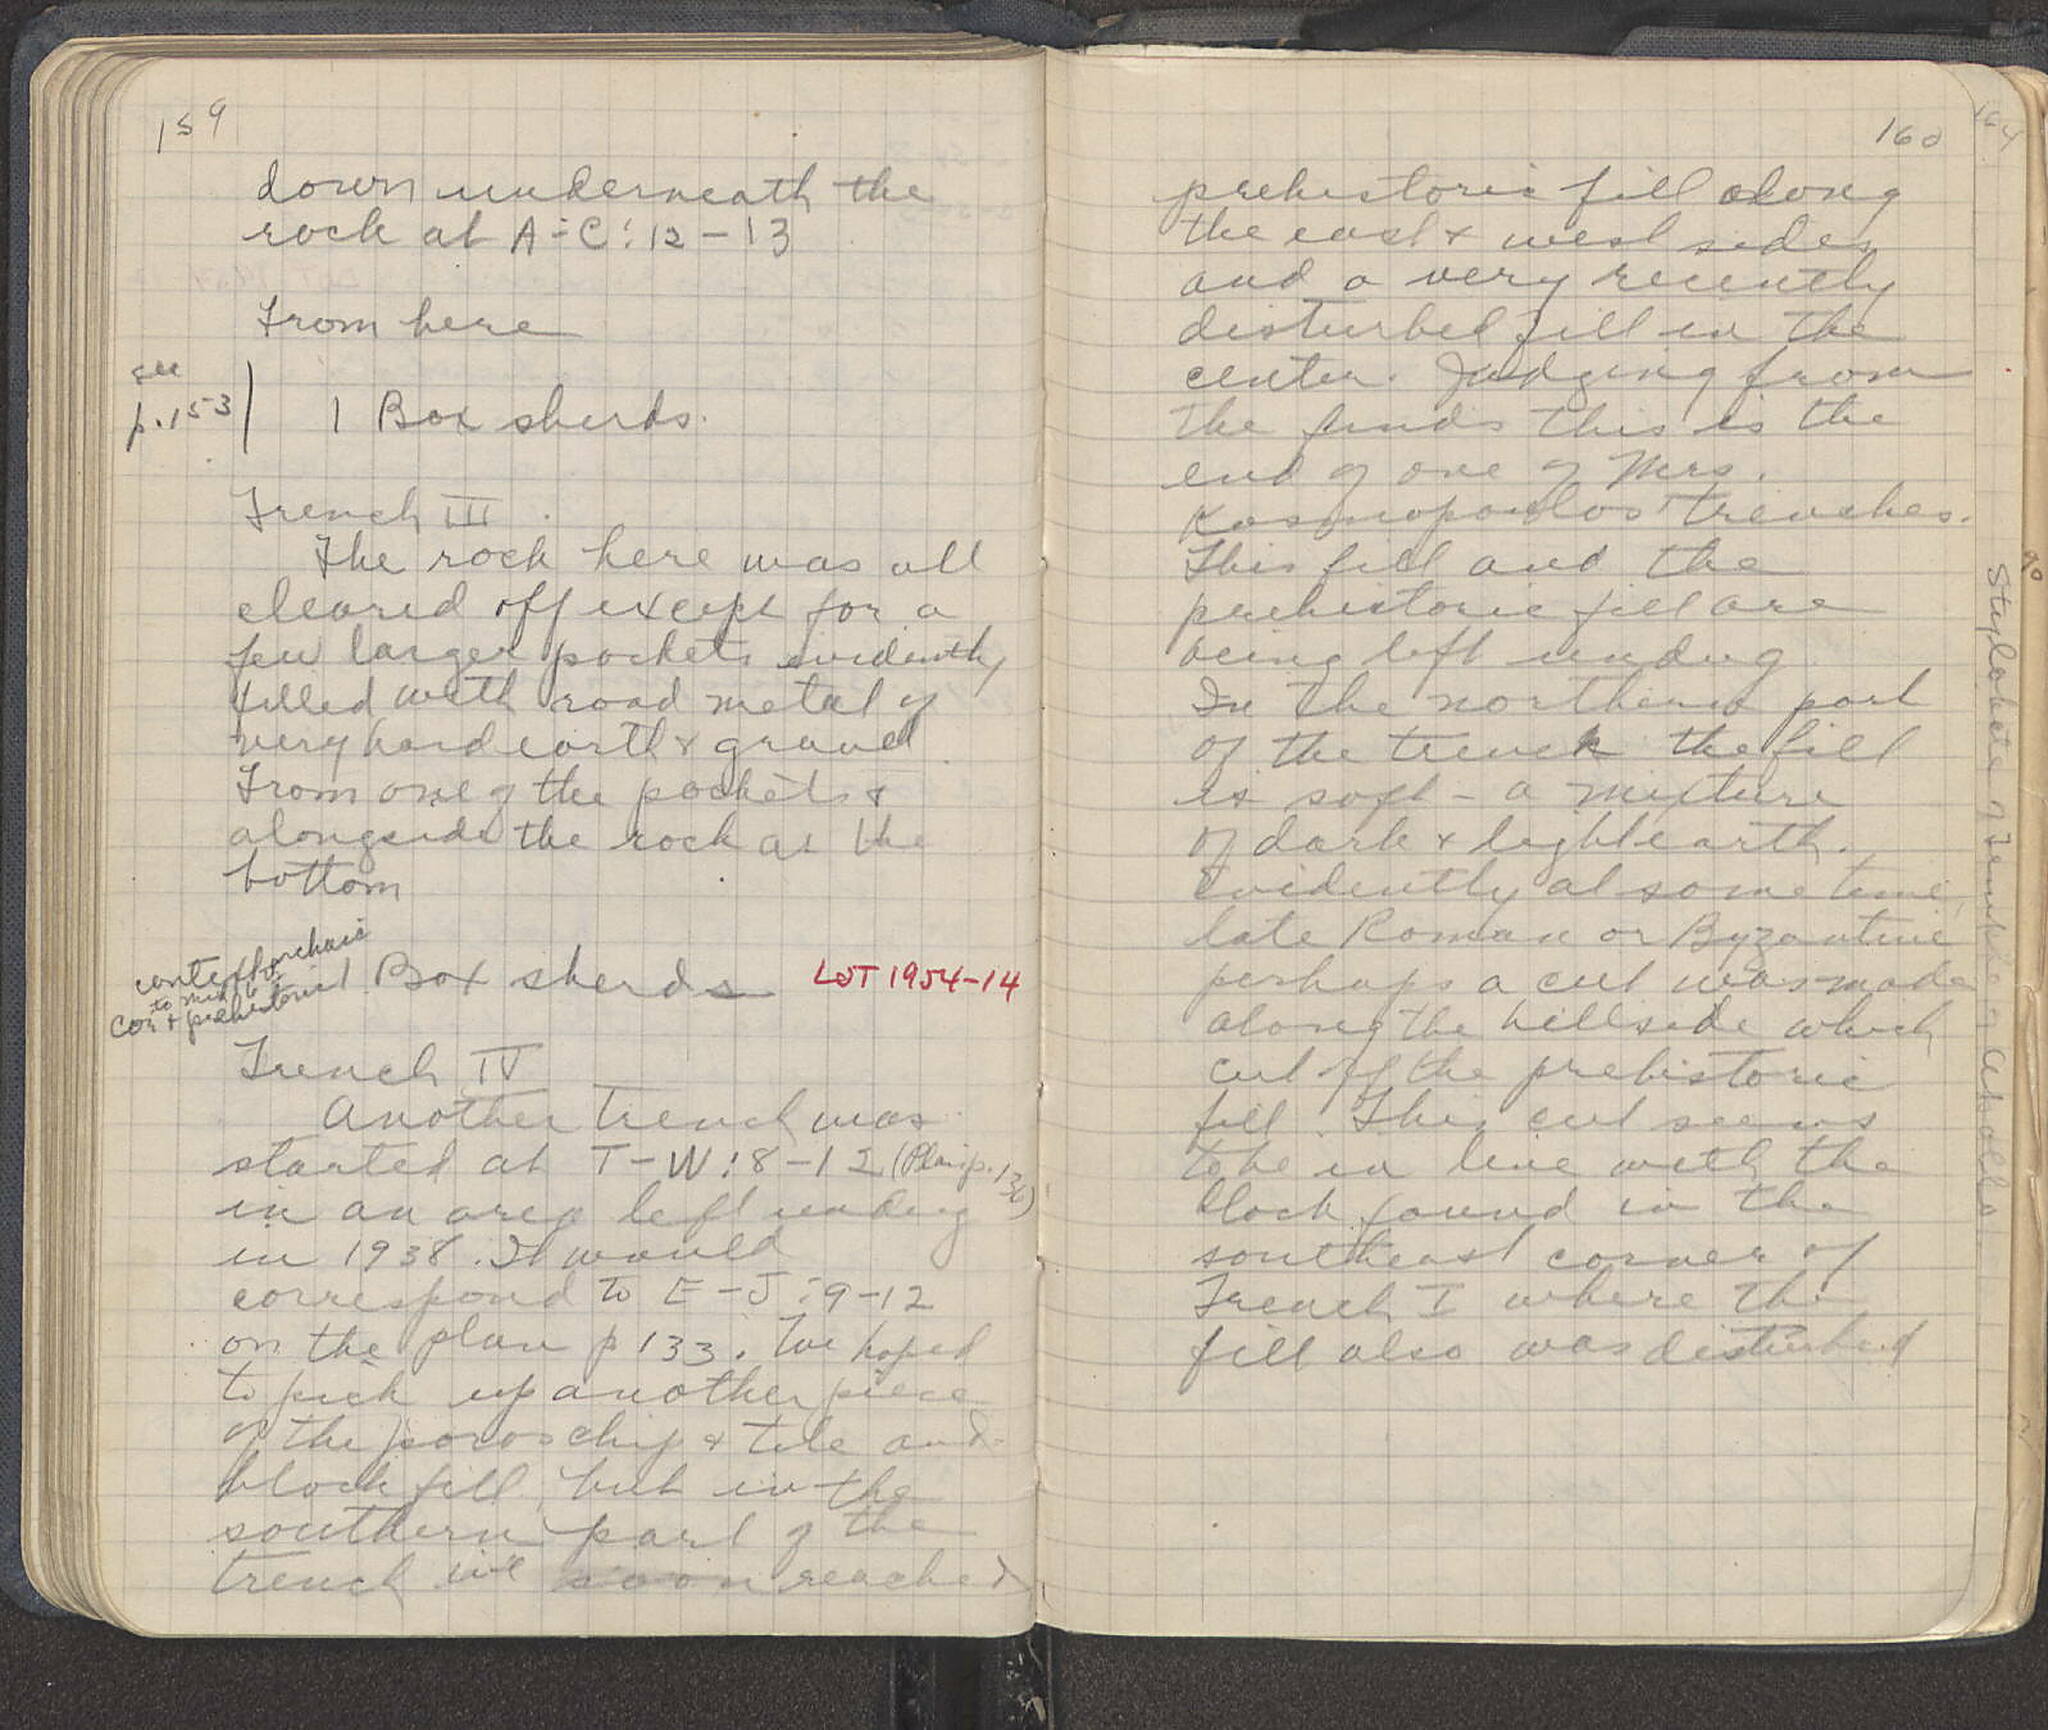 159
down underneath the
rock at A-C:12-13
From here
see
p. 153
1 Box sherds.
Trench III.
The rock here was all
cleared off except for a
few larger pockets evidently
filled with road metal of
very hard earth & gravel
From one of the pockets &
alongside the rock at the
bottom
archaic
to
Cor & prehistoric
1 Box sherds
LOT 1954-14
Trench IV
Another trench was
started at T-W:8-12 (Plan p. 136)
in an area left undug
in 1938. It would
correspond to E-J:9-12
on the plan p 133. We hoped
to pick up another piece
of the poros chip & tile and
block fill, but in the
southern part of the
trench we soon reached
160
prehistoric fill along
the east & west sides
and a very recently
disturbed fill in the
center. Judging from
the finds this is the
end of one of Mrs.
Kosmopoulos' trenches.
This fill and the
prehistoric fill are
being left undug
In the northern part
of the trench the fill
is soft - a mixture
of dark & light earth.
Evidently at some time,
late Roman or Byzantine
perhaps a cut was made
along the hillside which
cut off the prehistoric
fill. This cut seems
to be in line with the
block found in the
southeast corner of
Trench I where the
fill also was disturbed
164
Stylobate of Temple of Apollo